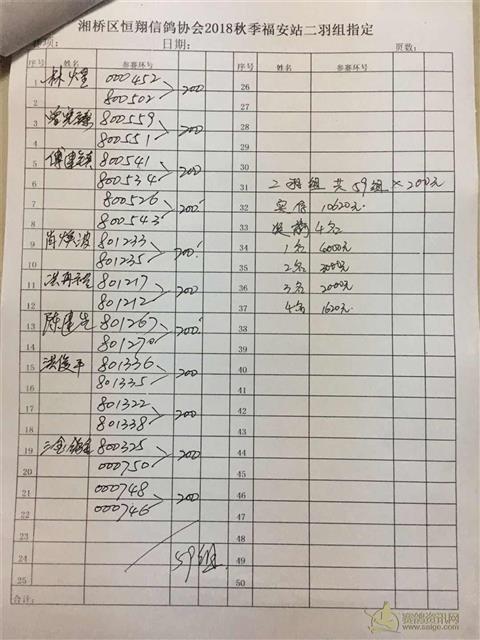 湘桥区恒翔信鸽协会2018秋季福安站二羽组指定
项: 日期: 页数:
序号 姓名 参赛环号 序号 姓名 参赛环号
1 林 000452 200 26
2 800502 27
3 800559 200 28
4 800551 29
5 傅建 800541 200 30
6 800534 31 二羽组共59组×200元
7 800526 200 32 实值10620元
8 800543 33 4名
9 肖 波 801233 200 34 1名 6000元
10 801235 35 2名 3000元
11 洪 801217 200 36 3名 2000元
12 801212 37 4名 1620元
13 陈建 801267 200 38
14 801270 39
15 洪俊平 801336 200 40
16 801335 41
17 801322 200 42
18 801338 43
19 800325 200 44
20 000750 45
21 000748 200 46
22 000746 47
23 48
24 59组 49
25 50
合计:
赛鸽资讯网
www.saige.com